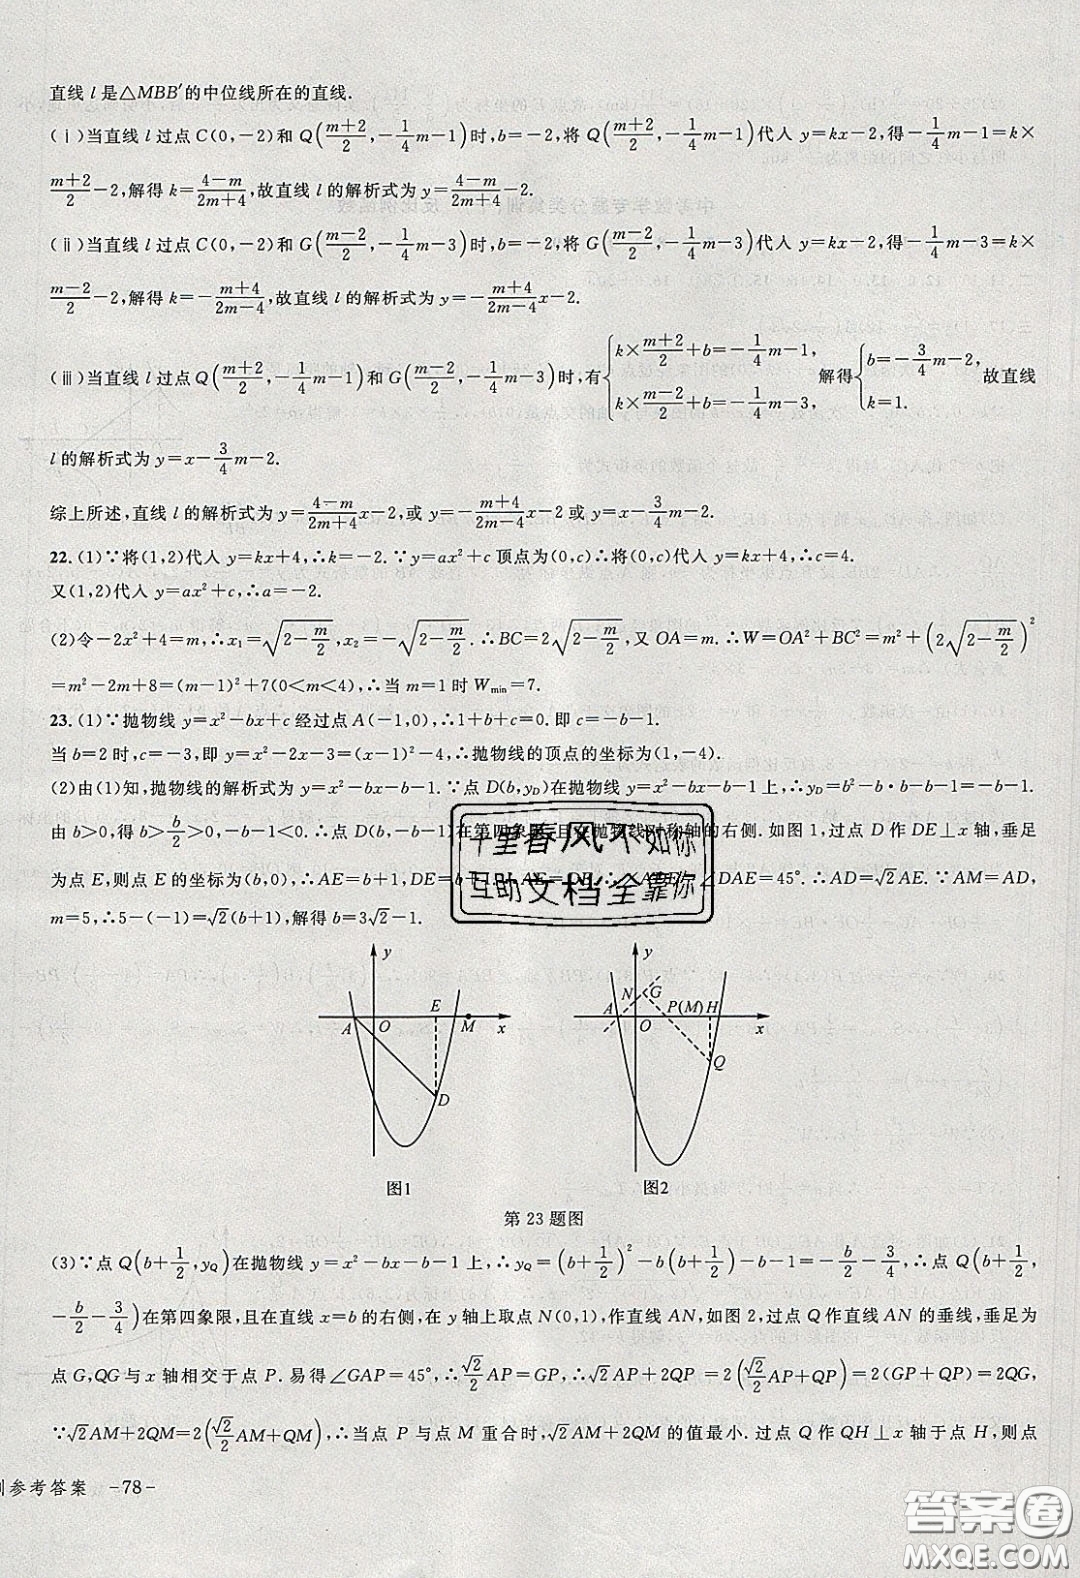 直线 l 是△MBB′的中位线所在的直线.
(ⅰ)当直线 l 过点 C(0,-2)和 Q(\frac{m+2}{2},-\frac{1}{4}m-1)时,b=-2,将 Q(\frac{m+2}{2},-\frac{1}{4}m-1)代人 y=kx-2,得-\frac{1}{4}m-1=k×
\frac{m+2}{2}-2,解得 k=\frac{4-m}{2m+4},故直线 l 的解析式为 y=\frac{4-m}{2m+4}x-2.
(ⅱ)当直线 l 过点 C(0,-2)和 G(\frac{m-2}{2},-\frac{1}{4}m-3)时,b=-2,将 G(\frac{m-2}{2},-\frac{1}{4}m-3)代人 y=kx-2,得-\frac{1}{4}m-3=k×
\frac{m-2}{2}-2,解得 k=-\frac{m+4}{2m-4},故直线 l 的解析式为 y=-\frac{m+4}{2m-4}x-2.
(ⅲ)当直线 l 过点 Q(\frac{m+2}{2},-\frac{1}{4}m-1)和 G(\frac{m-2}{2},-\frac{1}{4}m-3)时,有{k×\frac{m+2}{2}+b=-\frac{1}{4}m-1, k×\frac{m-2}{2}+b=-\frac{1}{4}m-3, 解得{b=-\frac{3}{4}m-2, k=1. 故直线
l 的解析式为 y=x-\frac{3}{4}m-2.
综上所述,直线 l 的解析式为 y=\frac{4-m}{2m+4}x-2,或 y=-\frac{m+4}{2m-4}x-2 或 y=x-\frac{3}{4}m-2.
22.(1)∵将(1,2)代人 y=kx+4,∴k=-2.∵y=ax²+c 顶点为(0,c)∴将(0,c)代人 y=kx+4,∴c=4.
又(1,2)代人 y=ax²+c,∴a=-2.
(2)令-2x²+4=m,∴x₁=\sqrt{2-\frac{m}{2}},x₂=-\sqrt{2-\frac{m}{2}}.∴BC=2\sqrt{2-\frac{m}{2}},又 OA=m.∴W=OA²+BC²=m²+(2\sqrt{2-\frac{m}{2}})²
=m²-2m+8=(m-1)²+7(0<m<4),∴当 m=1 时 Wmin=7.
23.(1)∵抛物线 y=x²-bx+c 经过点 A(-1,0),∴1+b+c=0.即 c=-b-1.
当 b=2 时,c=-3,即 y=x²-2x-3=(x-1)²-4,∴抛物线的顶点的坐标为(1,-4).
(2)由(1)知,抛物线的解析式为 y=x²-bx-b-1.∵点 D(b,y_D)在抛物线 y=x²-bx-b-1 上,∴y_D=b²-b·b-b-1=-b-1.
由 b>0,得 b>\frac{b}{2}>0,-b-1<0.∴点 D(b,-b-1)在第四象限,且在抛物线对称轴的右侧.如图 1,过点 D 作 DE⊥x 轴,垂足
为点 E,则点 E 的坐标为(b,0),∴AE=b+1,DE=b+1.∴AE=DE.∴∠ADE=∠DAE=45°.∴AD=√2AE.∵AM=AD,
m=5,∴5-(-1)=√2(b+1),解得 b=3√2-1.
y
E
A O M x
D
图1
y
N G P(M) H
A O x
Q
图2
第 23 题图
(3)∵点 Q(b+\frac{1}{2},y_Q)在抛物线 y=x²-bx-b-1 上,∴y_Q=(b+\frac{1}{2})²-b(b+\frac{1}{2})-b-1=-\frac{b}{2}-\frac{3}{4},∴点 Q(b+\frac{1}{2},
-\frac{b}{2}-\frac{3}{4})在第四象限,且在直线 x=b 的右侧,在 y 轴上取点 N(0,1),作直线 AN,如图 2,过点 Q 作直线 AN 的垂线,垂足为
点 G,QG 与 x 轴相交于点 P.易得∠GAP=45°,∴\frac{√2}{2}AP=GP,∴√2AP+2QP=2(\frac{√2}{2}AP+QP)=2(GP+QP)=2GQ,
∵√2AM+2QM=2(\frac{√2}{2}AM+QM),∴当点 P 与点 M 重合时,√2AM+2QM 的值最小.过点 Q 作 QH⊥x 轴于点 H,则点
参考答案 -78-
千里春风不如你
互助文档全靠你
答案圈
MXQE.COM